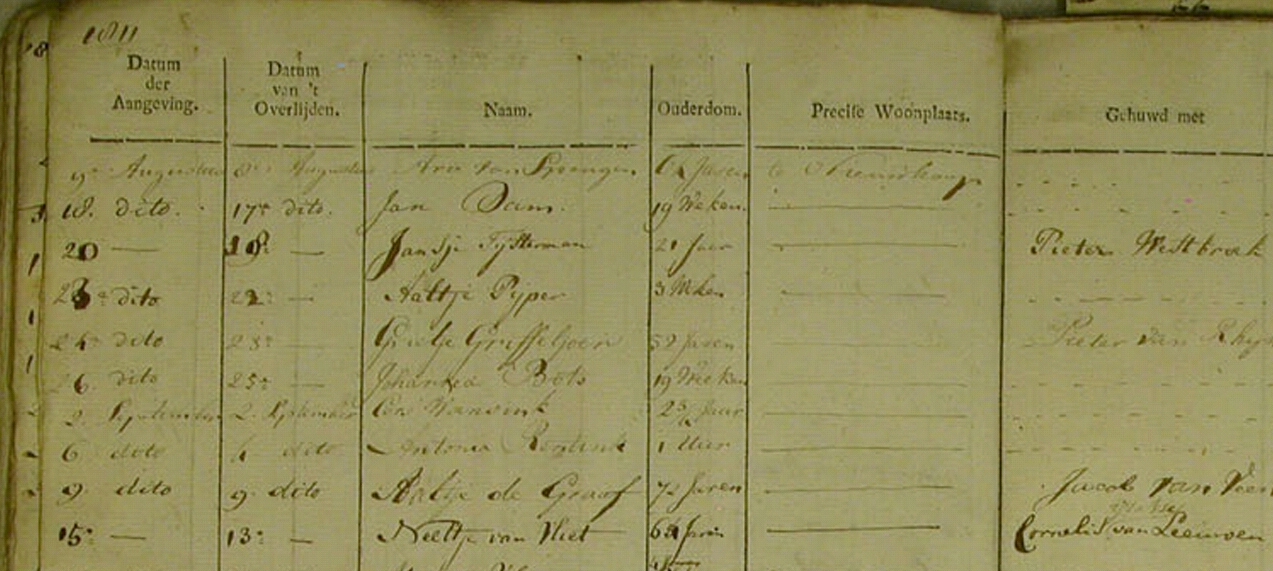 1811
Datum der Aangeving. Datum van 't Overlijden. Naam. Ouderdom. Precise Woonplaats. Gehuwd met
9e Augustus 8e Augustus Arie van 6 Jaren te Nieuwkoop
18. dito. 17e dito. Jan Dam. 19 Weken.
20 — 18e — Jansje Tijsterman 21 Jaar — Pieter Westbroek
23e dito 22e — Aaltje Pijper 3 Weken —
24e dito 23e — Grietje Griffeljoen 52 Jaren — Pieter van Rhyn
26. dito 25e — Johanna Bots 19 Weeken —
2. September 2. September Jaar —
6 dito dito Antonia 1 Uur —
9. dito 9. dito Aaltje de Graaf 72 Jaren — Jacob van Veen
15e — 13e — Neeltje van Vliet 62 Jaren — Cornelis van Leeuwen